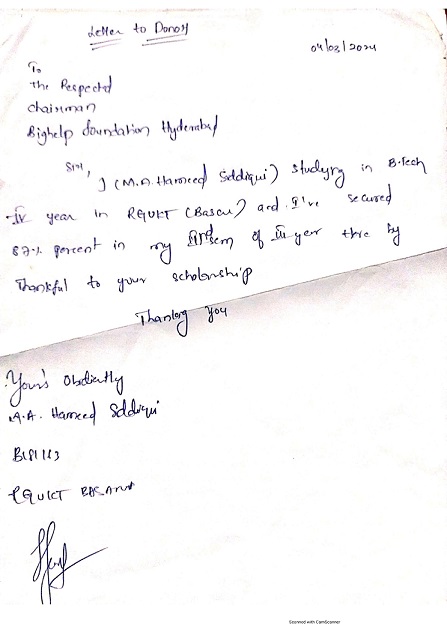 Letter to Donor
04/03/2024
To
The Respected
Chairman
Bighelp foundation Hyderabad
Sir,
I (M.A. Hameed Siddiqui) Studying in B.Tech
IV year in RGUKT (Basar) and I've secured
87% percent in my sem of III year there by
Thankful to your scholarship
Thanking you
Your's Obediently
M.A. Hameed Siddiqui
B181113
RGUKT BASARA
Scanned with CamScanner